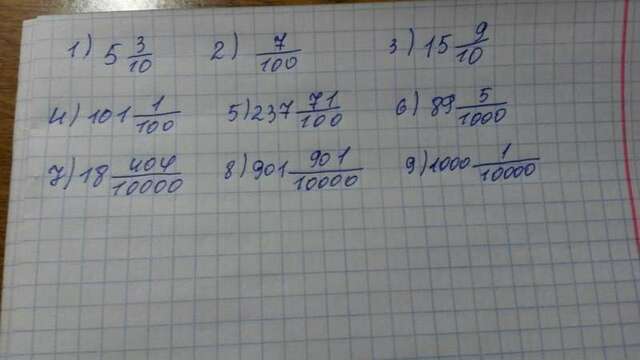 1) 5 3/10 2) 7/100 3) 15 9/10
4) 101 1/100 5) 237 71/100 6) 89 5/1000
7) 18 404/10000 8) 901 901/10000 9) 1000 1/10000